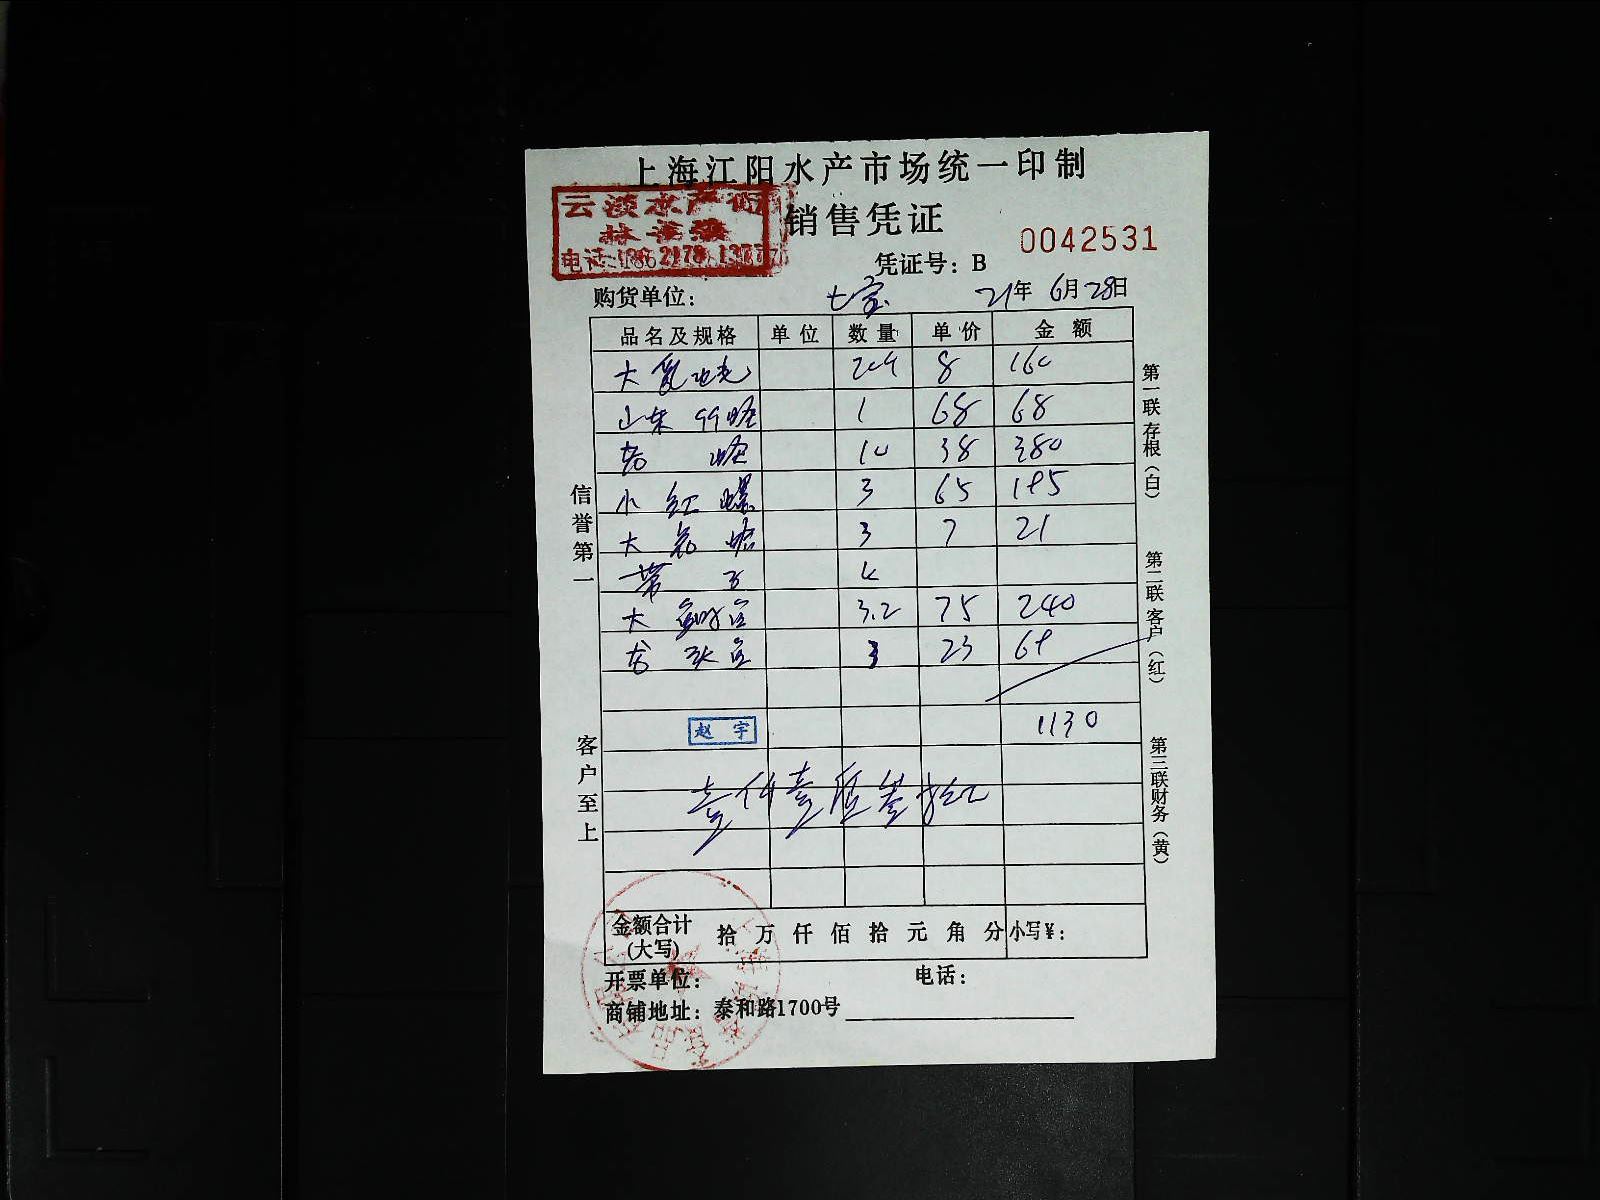 上海江阳水产市场统一印制
云淡水产行
销售凭证
0042531
凭证号：B
购货单位： 七宝 21年 6月28日
品名及规格 单位 数量 单价 金额
大 8 160
山东 1 68 68
10 38 380
小红螺 3 65 195
大 蛤 3 7 21
带子 4
大鲍鱼 3.2 75 240
龙头鱼 3 23 69
赵宇 1130
壹仟壹佰叁拾元
金额合计(大写) 拾 万 仟 佰 拾 元 角 分 小写¥：
开票单位： 电话：
商铺地址：泰和路1700号
信誉第一
客户至上
第一联存根（白）
第二联客户（红）
第三联财务（黄）